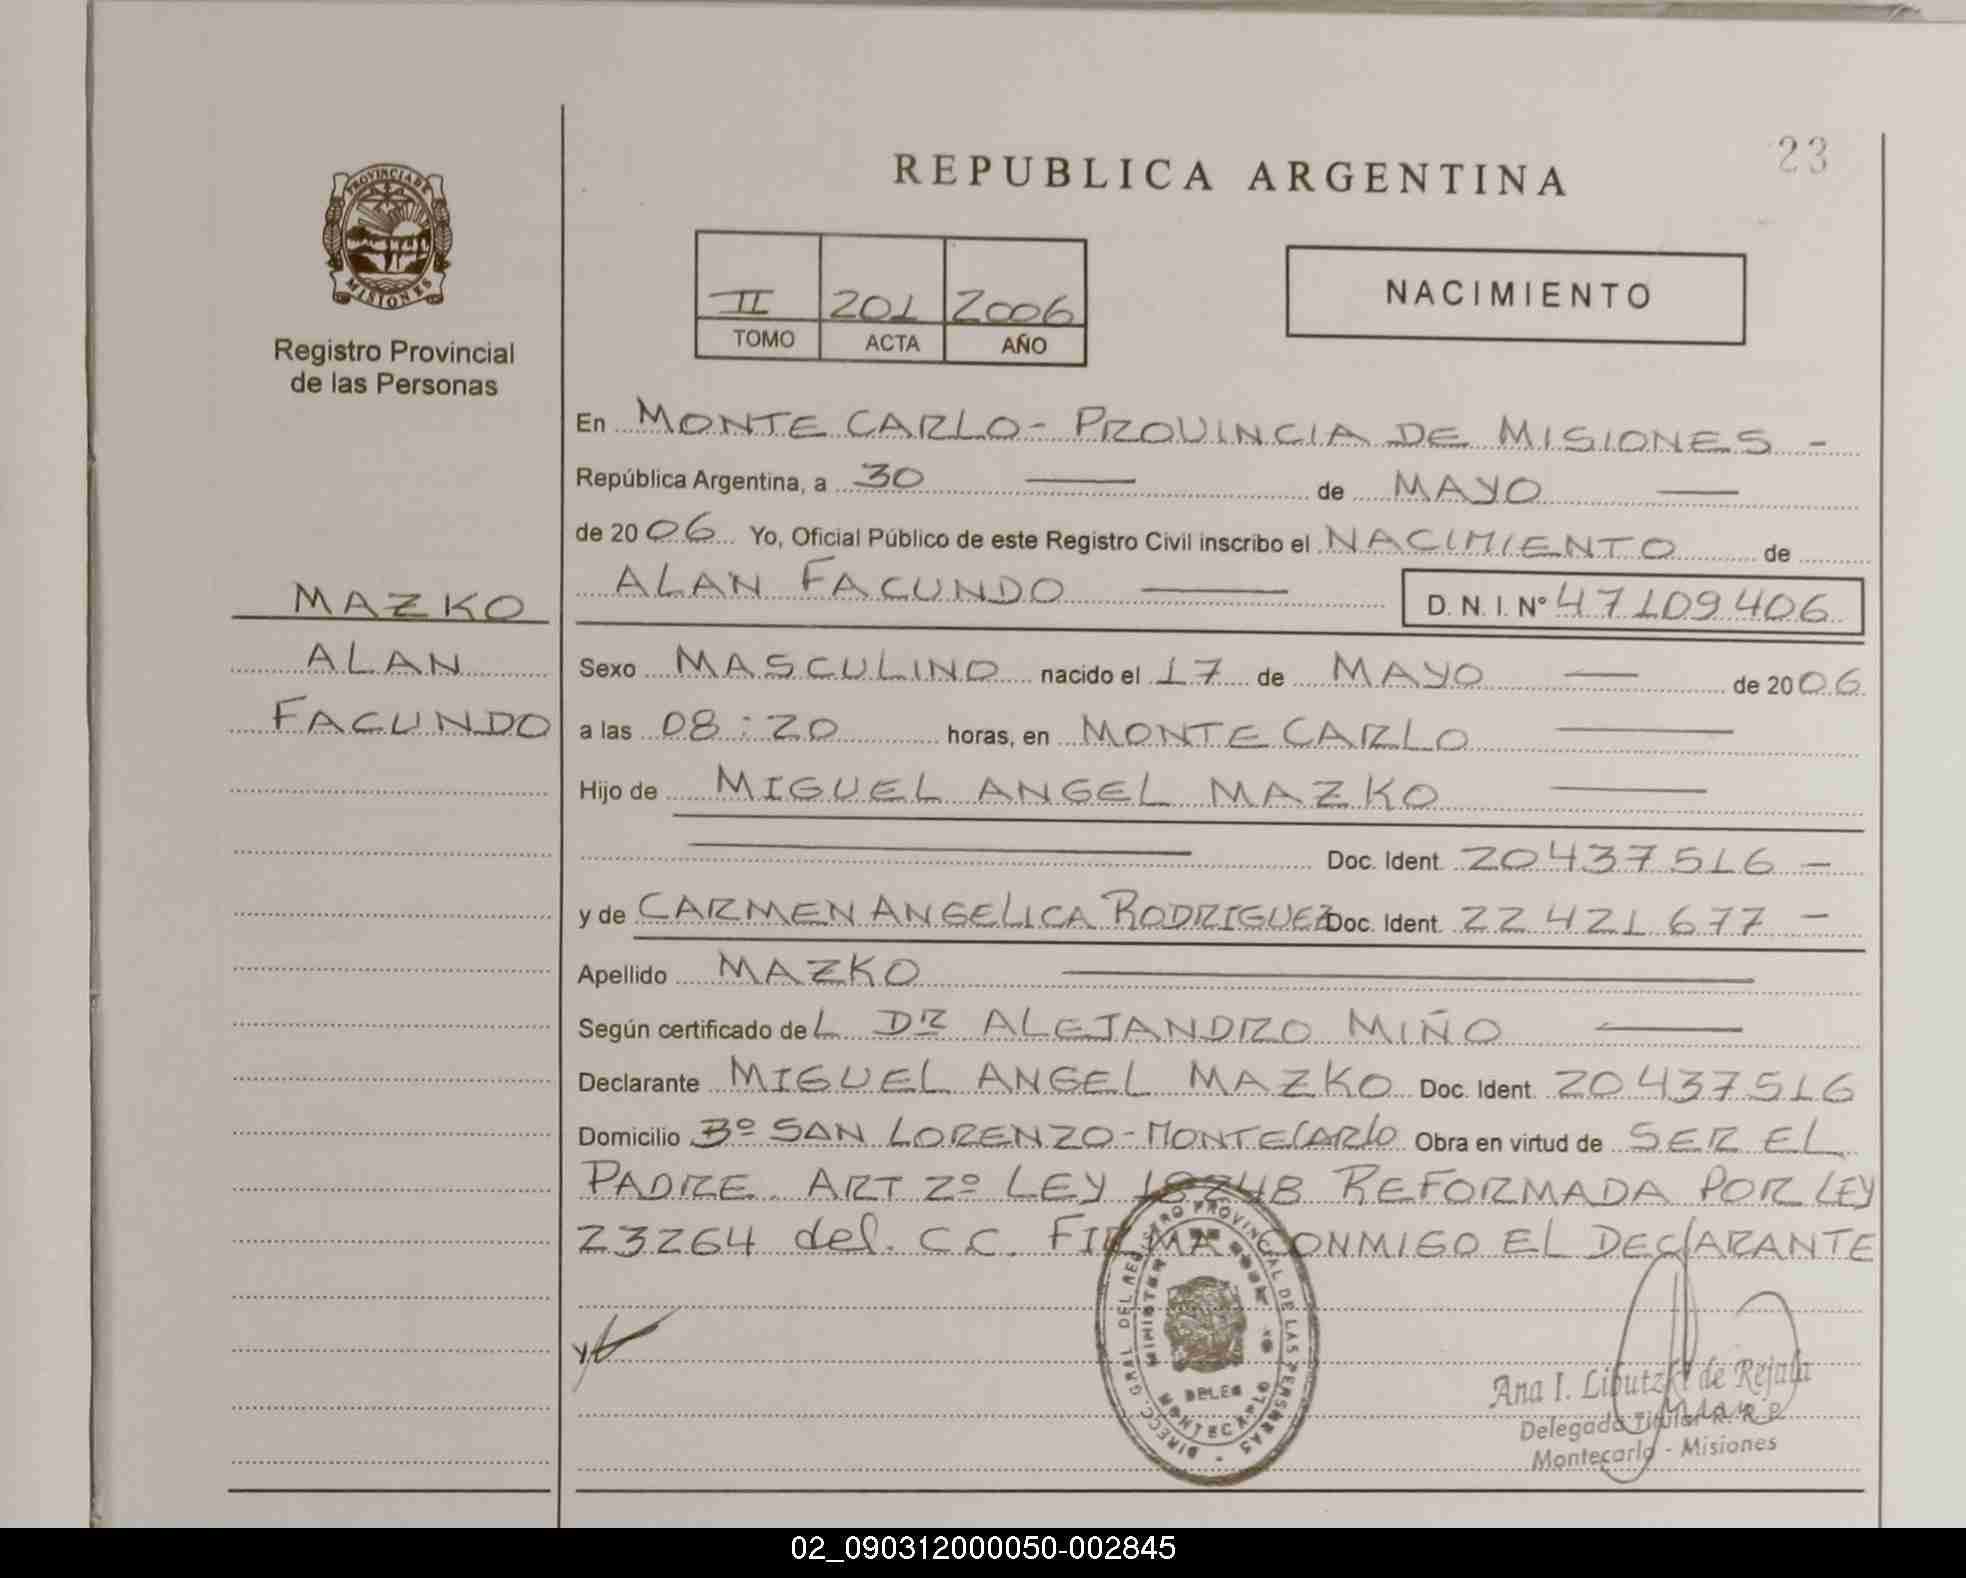 23
REPUBLICA ARGENTINA
PROVINCIA DE MISIONES
Registro Provincial
de las Personas
II 201 2006
TOMO ACTA AÑO
NACIMIENTO
En MONTECARLO - PROVINCIA DE MISIONES -
República Argentina, a 30 — de MAYO —
de 2006 Yo, Oficial Público de este Registro Civil inscribo el NACIMIENTO de
ALAN FACUNDO — D. N. I. Nº 47109406
MAZKO
ALAN
FACUNDO
Sexo MASCULINO nacido el 17 de MAYO — de 2006
a las 08:20 horas, en MONTECARLO —
Hijo de MIGUEL ANGEL MAZKO —
— Doc. Ident. 20437516 —
y de CARMEN ANGELICA RODRIGUEZ Doc. Ident. 22421677 —
Apellido MAZKO —
Según certificado deL DR ALEJANDRO MIÑO —
Declarante MIGUEL ANGEL MAZKO Doc. Ident. 20437516
Domicilio Bº SAN LORENZO - MONTECARlO Obra en virtud de SER EL
PADRE. ART 2º LEY 18248 REFORMADA POR LEY
23264 del. C.C. FIRMA CONMIGO EL DEClARANTE
DIRECC. GRAL. DEL REGISTRO PROVINCIAL DE LAS PERSONAS
DELEG
MONTECARLO
Ana I. de Rejala
Delegada Titular R. R. P.
Montecarlo - Misiones
02_090312000050-002845